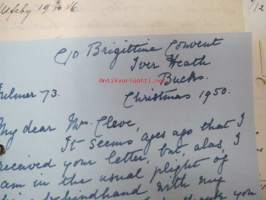 C/O Brigittine Convent
Iver Heath
Bucks.
Fulmer 73.
Christmas 1950.
My dear Mrs. Cleve,
It seems ages ago that I
received your letter, but, alas, I
am in the usual plight of
behindhand with my